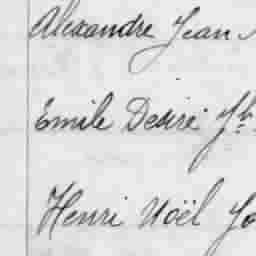 Alexandre Jean
Emile Desiré Jh
Henri Noël Jo